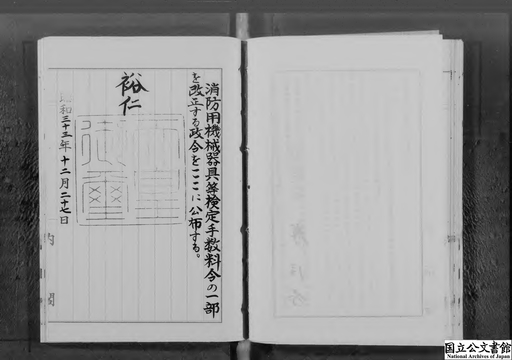 消防用機械器具等検定手数料令の一部
を改正する政令をここに公布する。
裕仁
天皇
御璽
昭和三十三年十二月二十七日
内閣
国立公文書館
National Archives of Japan